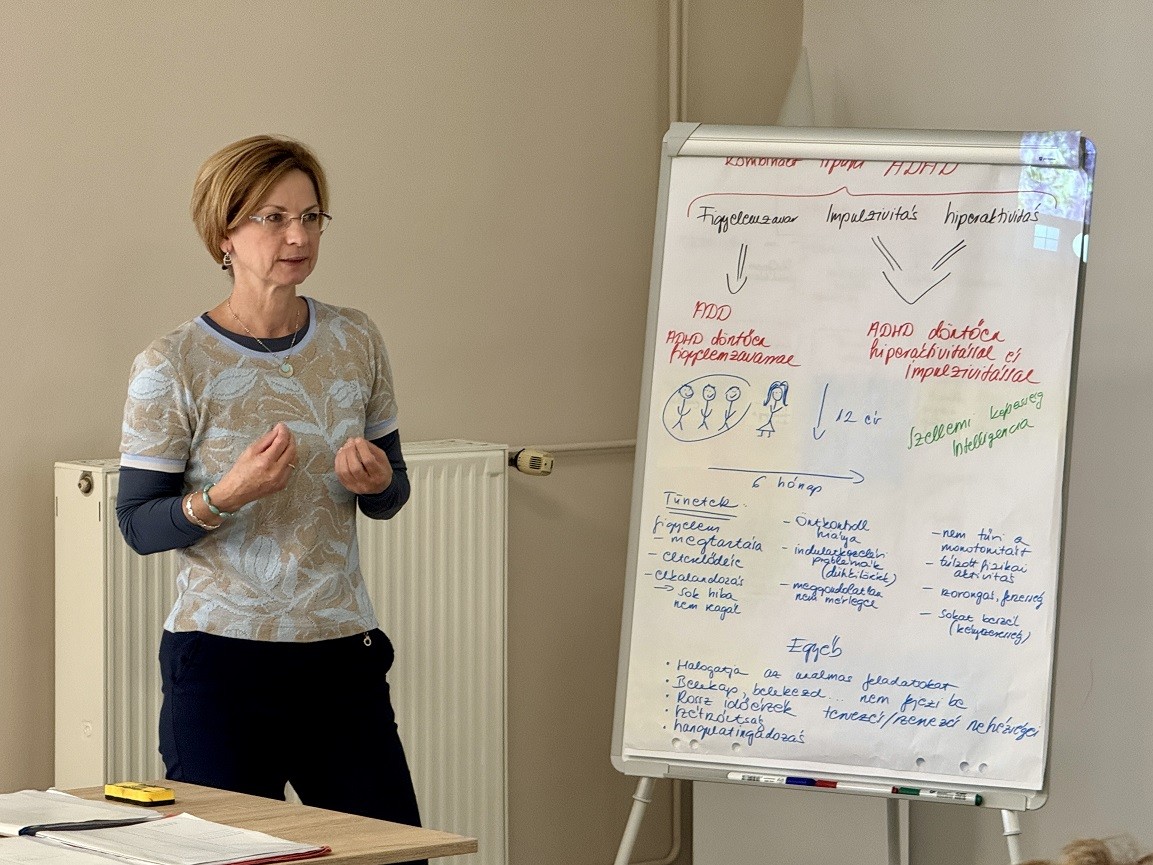 Kombinált típusú ADHD
Figyelemzavar Impulzivitás hiperaktivitás
ADD
ADHD döntően
figyelemzavarral
ADHD döntően
hiperaktivitással és
impulzivitással
12 év
Szellemi képesség
Intelligencia
6 hónap
Tünetek
figyelem
- megtartása
- elterelődése
- elkalandozás
→ sok hiba
nem reagál
- Önkontroll
hiánya
- indulatkezelési
problémák
(dühkitörések)
- meggondolatlan
nem mérlegel
- nem tűri a
monotonitást
- túlzott fizikai
aktivitás
- izgés, fészkelődés
- sokat beszél
(kényszeresség)
Egyéb
• Halogatja az unalmas feladatokat
• Belekap, belekezd... nem fejezi be
• Rossz időérzék tervezési/szervezési nehézségei
• szétszórtság
• hangulatingadozás